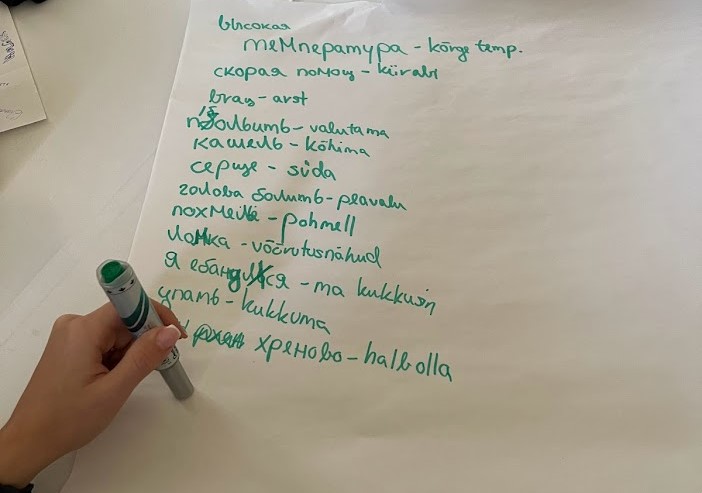 высокая
температура - kõrge temp.
скорая помощ - kiirabi
врач - arst
болить - valutama
кашель - köhima
серце - süda
голова болить - peavalu
похмелье - pohmell
ломка - võõrutusnähud
я ебанулся - ma kukkusin
упать - kukkuma
хреново - halb olla